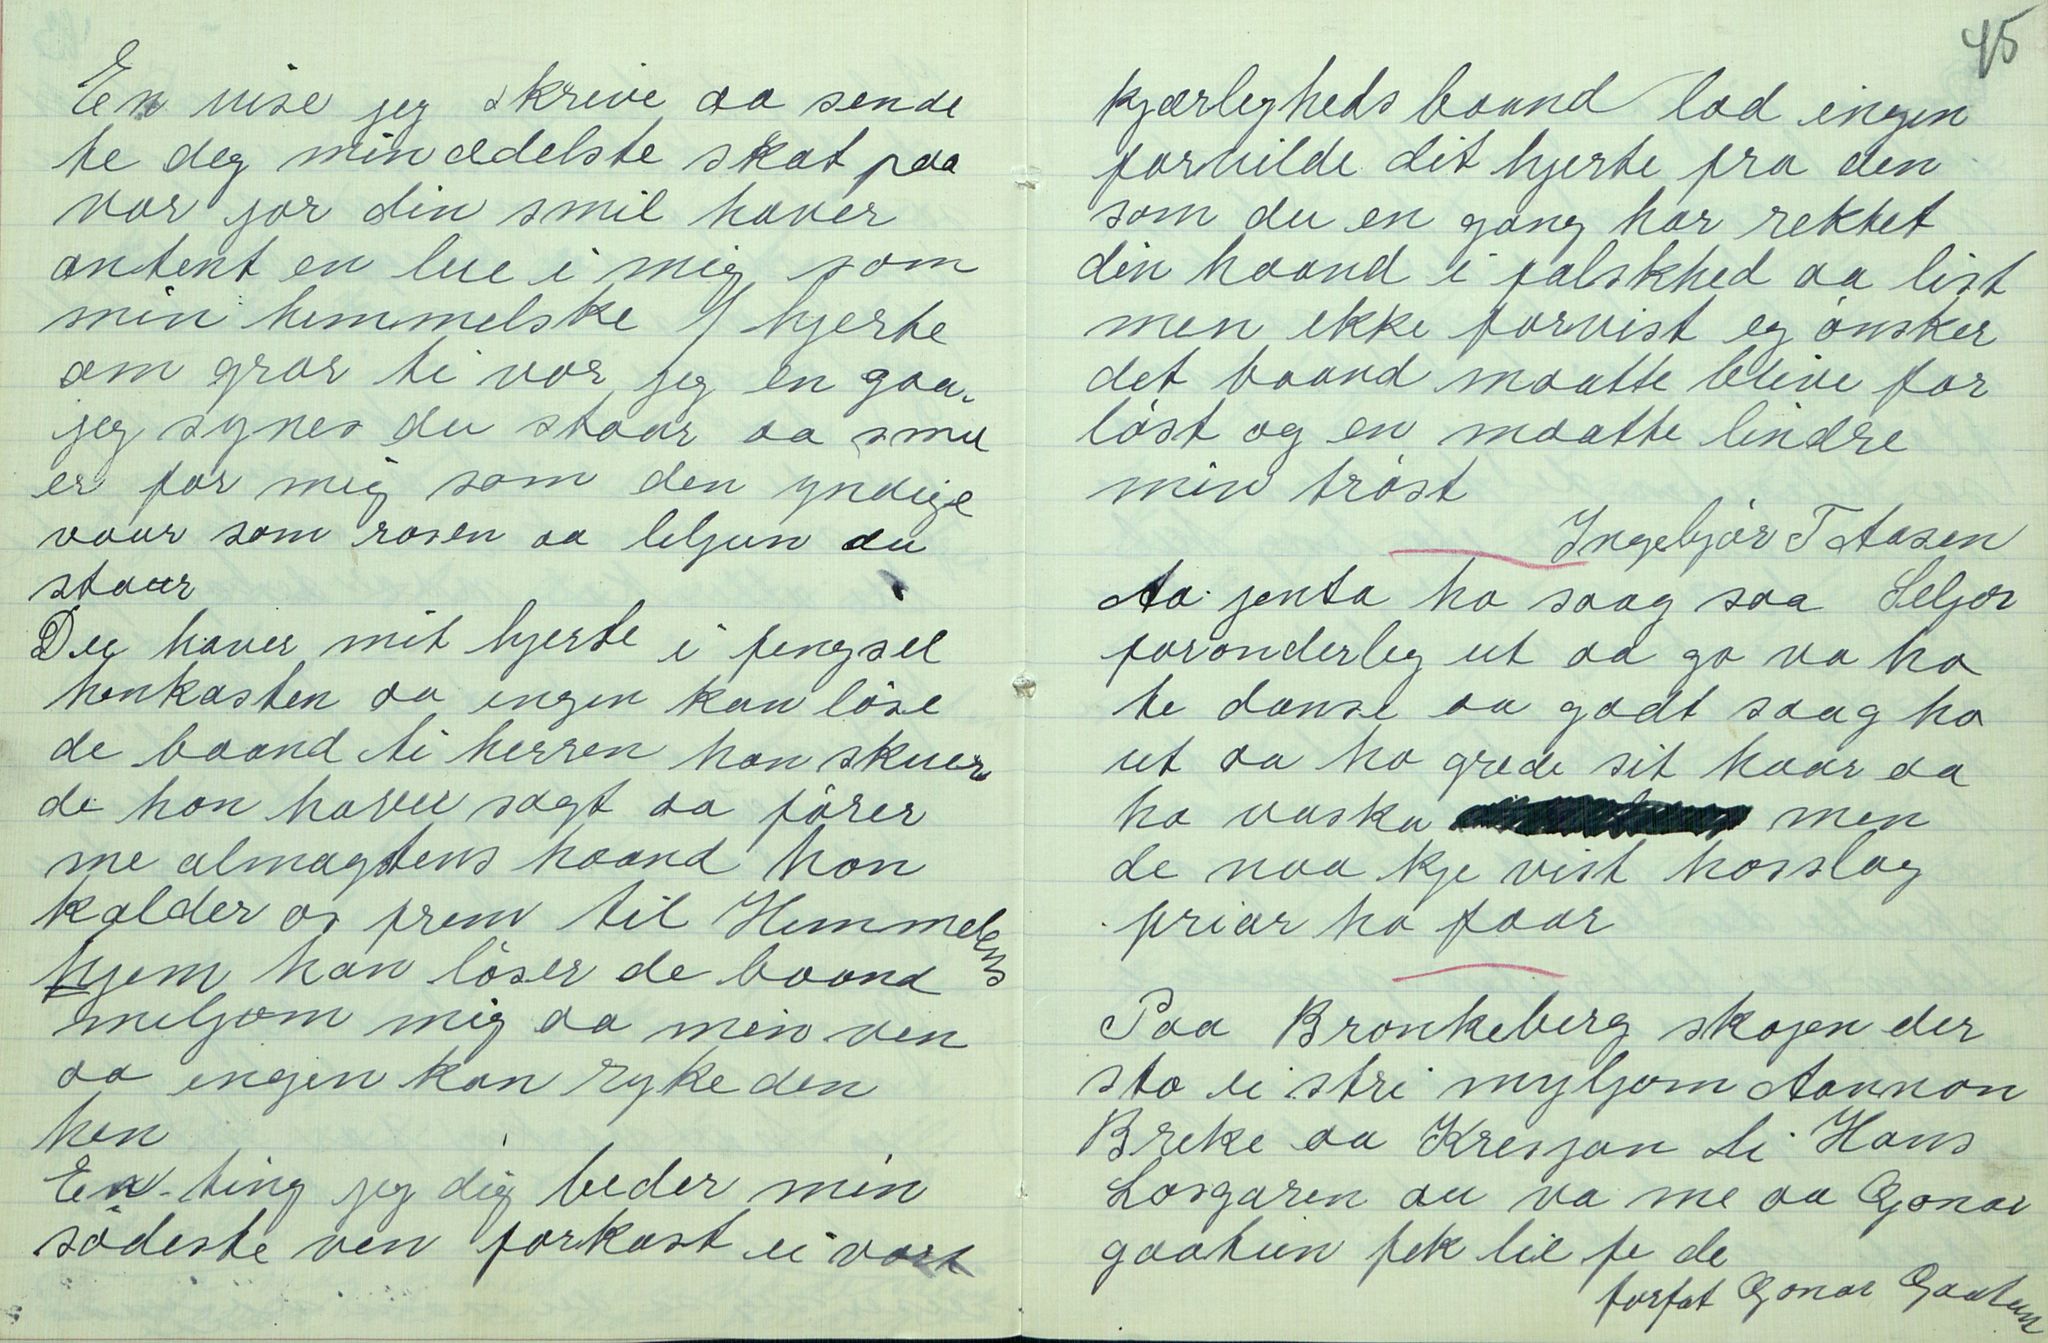 En vise jeg skrive aa sende
te deg min ædelste skat paa
vor jor din smil haver
antent en lue i mig som
min hemmelske hjerte
om gror ti vor jeg en gaa.
jeg synes du staar aa smil
er for mig som den yndige
vaar som rosen aa liljun du
staar
Du haver mit hjerte i fengsel
henkasten aa ingen kan löse
de baand ti herren han skuer
de han haver sagt aa förer
me almagtens haand han
kalder os frem til Hemmelens
hjem han löser de baand
meljom mig aa min ven
aa ingen kan rykke den
hen
En ting jeg dig beder min
södeste ven forkast ei vort
45
kjærligheds baand lad ingen
forvilde dit hjerte fra den
som du en gang har rektet
din haand i falskhed aa list
men ikke forvist eg önsker
det baand maatte blive for
löst og en maatte lindre
min tröst
Ingebjör T Aasen
Aa jenta ho saag saa Seljor
foronderleg ut aa go va ho
te danse aa godt saag ho
ut aa ho græde sit haar aa
ho vaska men
de naa kje vist hosslag
friar ho faar
Paa Bronkeberg skogen der
sto ei stri myljom Aannon
Breke aa Kresjan ti Hans
Losgaren au va me aa Gonar
gaatun fek lil fe de
forfat Gonar Gaatun